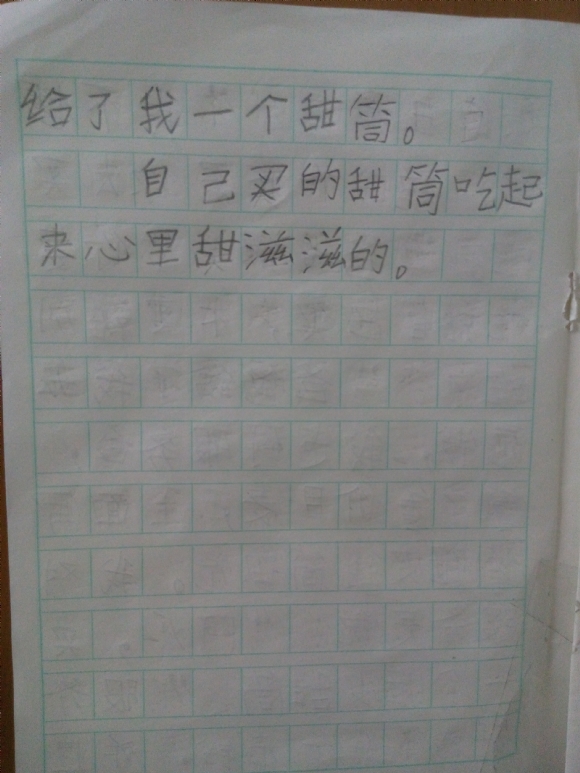 给了我一个甜筒。
自己买的甜筒吃起
来心里甜滋滋的。